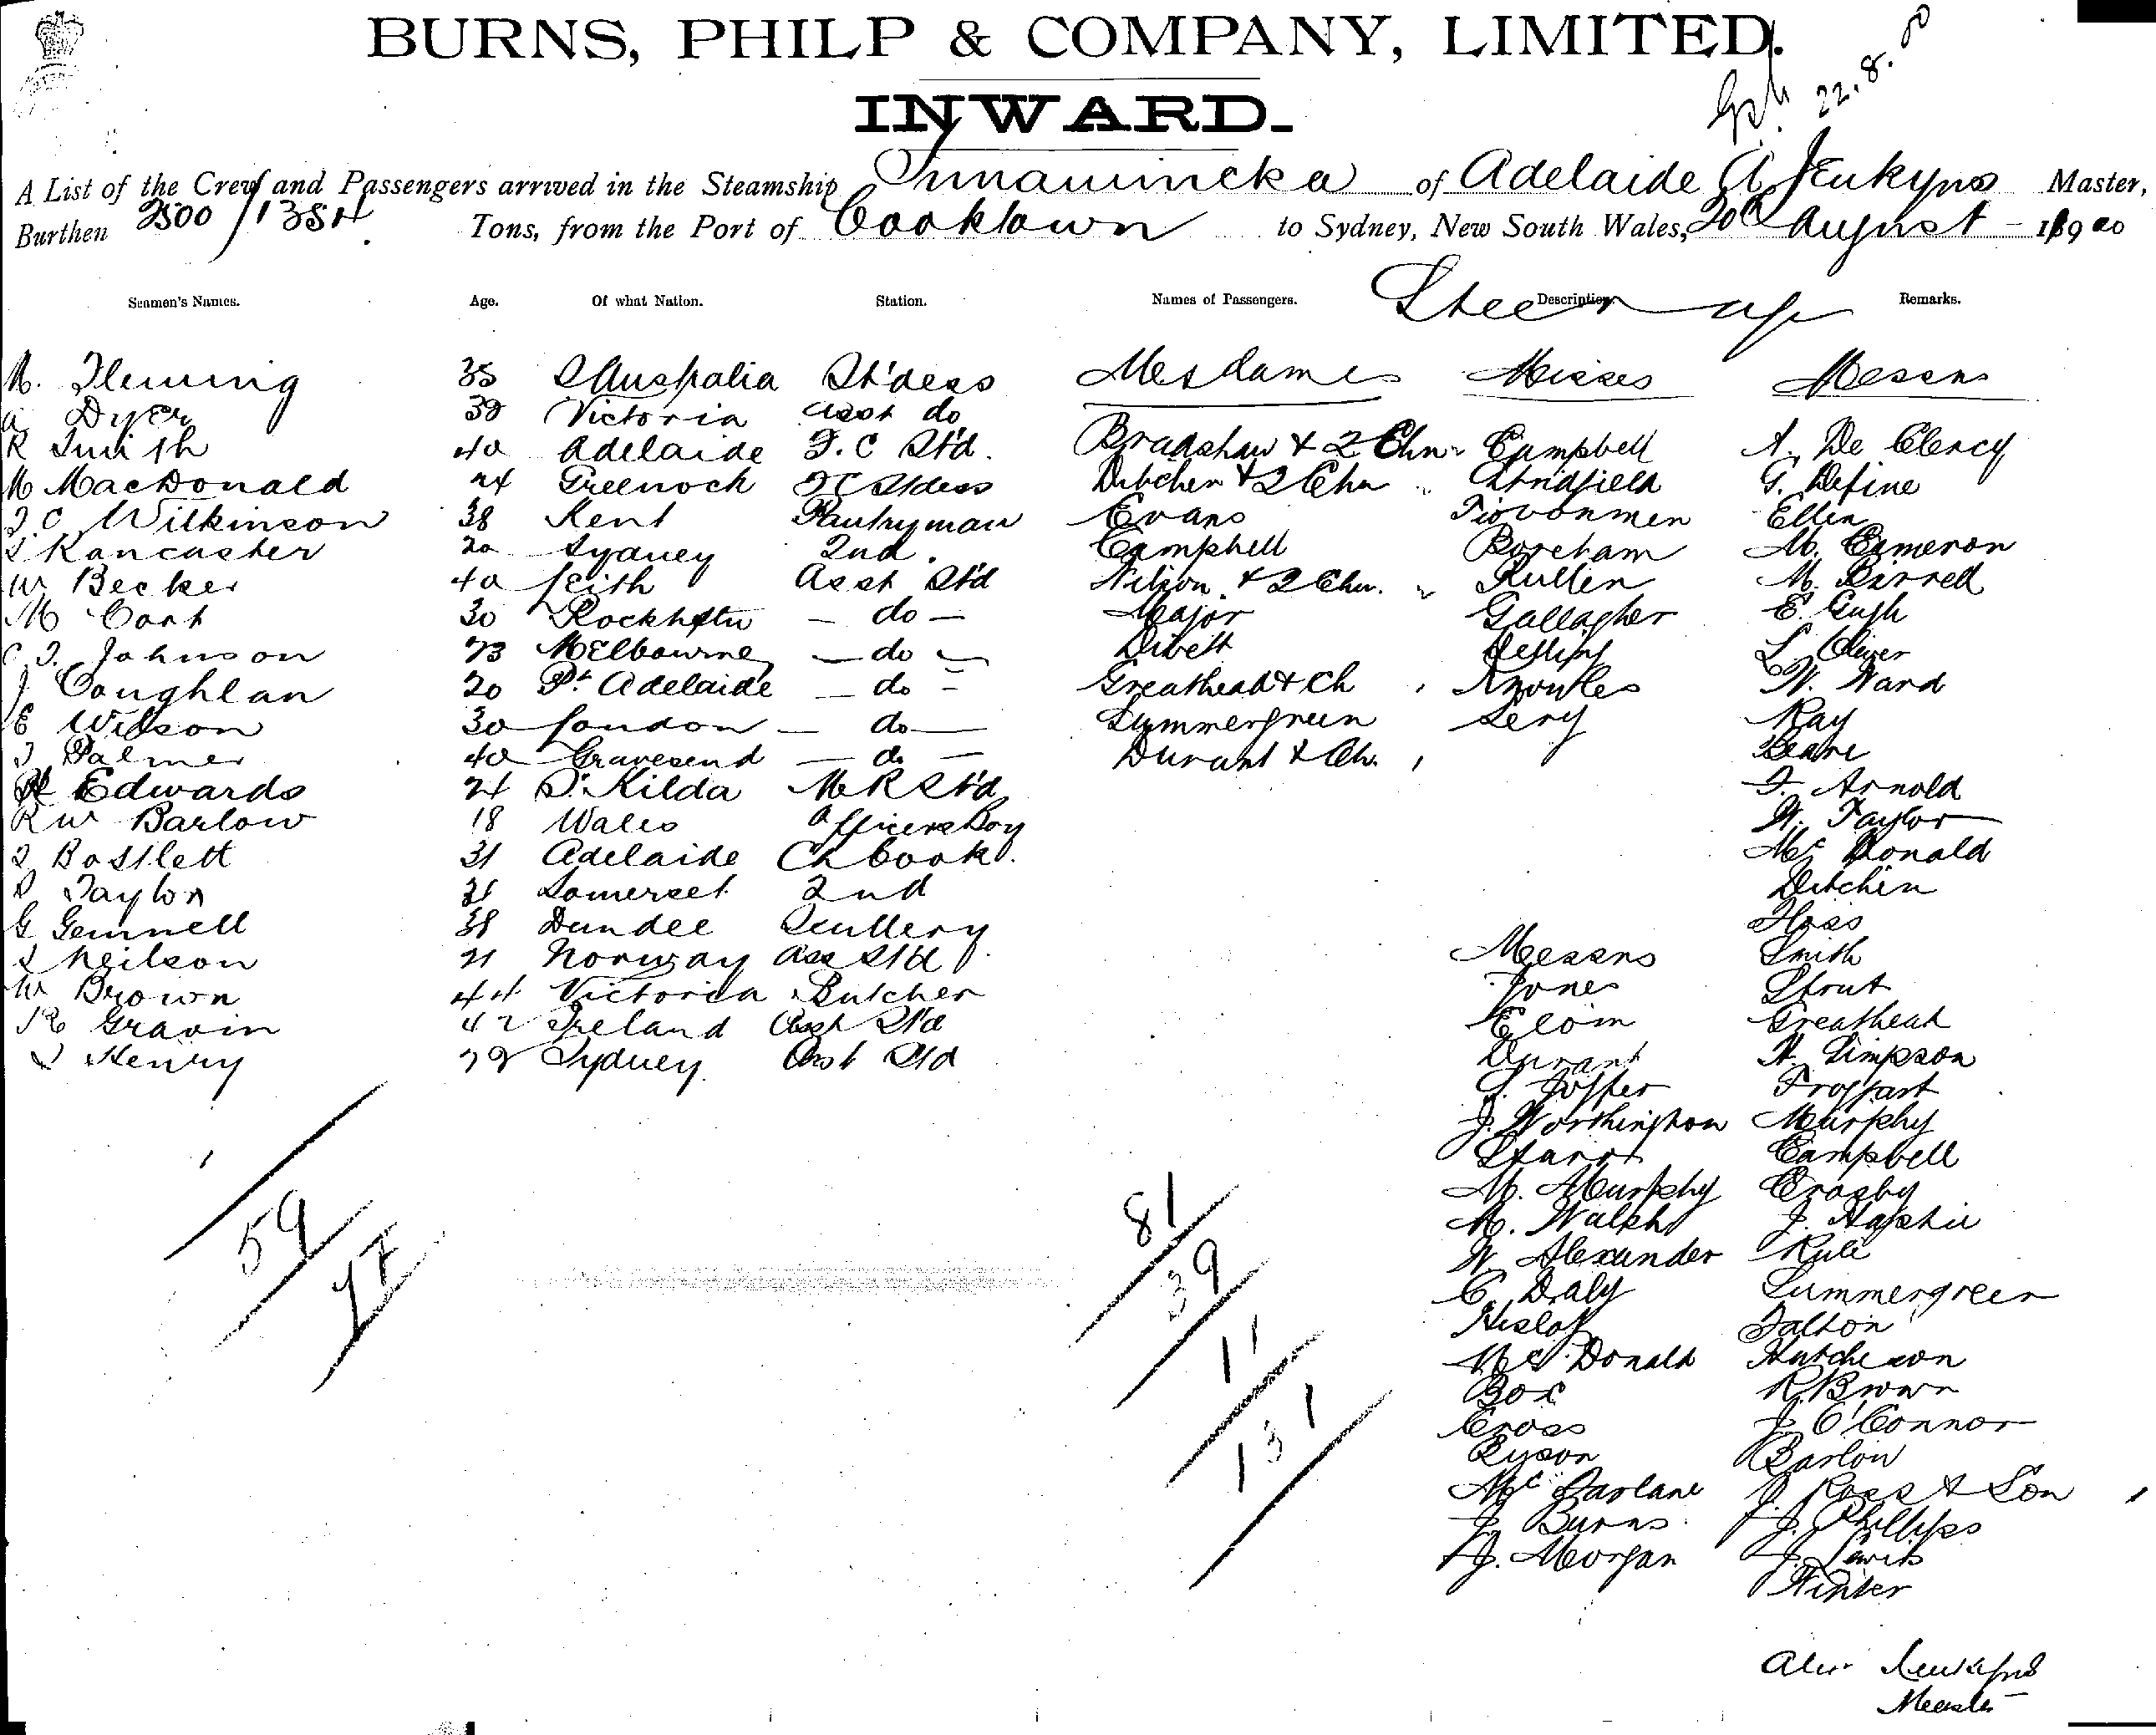 BURNS, PHILP & COMPANY, LIMITED.
22.8.00
INWARD.
A List of the Crew and Passengers arrived in the Steamship Innamincka of Adelaide A Jenkyns Master,
Burthen 2500 / 1384 Tons, from the Port of Cooktown to Sydney, New South Wales, 20th August 1900
Seamen's Names. Age. Of what Nation. Station. Names of Passengers. Description. Remarks.
Steerage
M. Fleming 35 S Australia St'dess Mesdames Misses Messrs
A Dyer 38 Victoria Asst do
R Smith 40 Adelaide F.C St'd. Bradshaw & 2 Chn Campbell A. De Clercy
M MacDonald 24 Greenock Stdess Ditchen & 2 Chn Stridfield G. Define
J C Wilkinson 38 Kent Pantryman Evans Ellen
Kancaster 20 Sydney 2nd. Campbell Boreham M. Cameron
W Becker 40 Leith Asst Std Nilson & 2 Chn. Rullen M. Birrell
M Cort 30 Rockhptn — do — Major Gallagher E. Gugh
C J. Johnson 23 Melbourne — do — Divett L. Oliver
J Coughlan 20 Pt Adelaide — do — Greathead & Ch Knowles W. Ward
E Wilson 30 London — do — Summergreen Lery Ray
J Palmer 40 Gravesend — do — Durant & Ch. Beare
Edwards 24 St Kilda M R St'd F. Arnold
R W Barlow 18 Wales Officers Boy W. Taylor
J Bartlett 31 Adelaide Ch Cook. Mc Donald
Taylor 31 Somerset 2nd Ditchin
G Gemmell 38 Dundee Scullery Hoss
Neilson 21 Norway Ass St'd Messrs Smith
W Brown 44 Victoria Butcher Jones Strut
Gravin 42 Ireland Asst St'd Eloin Greathead
J Henry 28 Sydney Asst Std Durant H. Simpson
Froggart
J. Worthington Murphy
Starr Campbell
M. Murphy Crosby
M. Walsh J.
W Alexander Rule
C. Daly Summergreen
Hislop Dalton
Mc Donald Hutcheson
Box R Brown
Cross J. O'Connor
Ryson Barlow
Mc Farlane J. Ross & Son
J. Burns J. Phillips
J. Morgan J. Lewis
Winter
59
17
81
39
11
131
Alex Jenkyns
Master